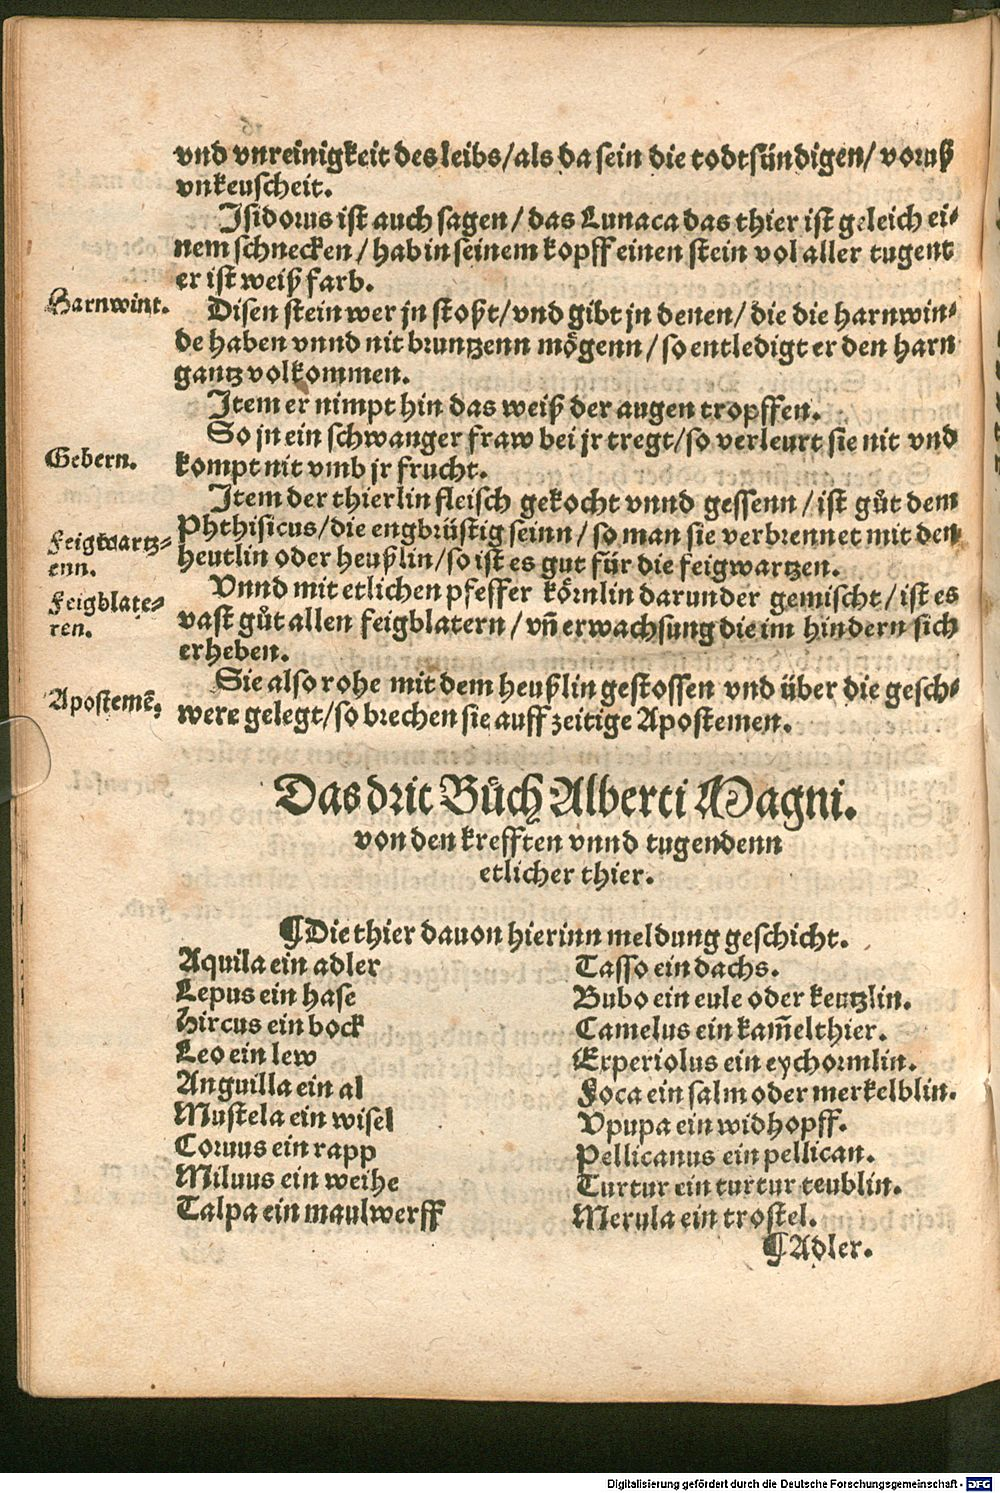 vnd vnreinigkeit des leibs/als da sein die todtsündigen/ voruß
vnkeuscheit.
Isidorus ist auch sagen/das Lunaca das thier ist geleich ei⸗
nem schnecken/hab in seinem kopff einen stein vol aller tugent
er ist weiß farb.
Harnwint.
Disen stein wer jn stoßt/vnd gibt jn denen/die die harnwin⸗
de haben vnnd nit bruntzenn mögenn/so entledigt er den harn
gantz volkommen.
Item er nimpt hin das weiß der augen tropffen.
So jn ein schwanger fraw bei jr tregt/so verleurt sie nit vnd
Gebern.
kompt nit vmb jr frucht.
Item der thierlin fleisch gekocht vnnd gessenn/ist gůt dem
Phthisicus/die engbrüstig seinn/so man sie verbrennet mit den
Feigwartz⸗
enn.
heutlin oder heußlin/so ist es gut für die feigwartzen.
Vnnd mit etlichen pfeffer körnlin darunder gemischt/ist es
Feigblate⸗
ren.
vast gůt allen feigblatern/vñ erwachsung die im hindern sich
erheben.
Sie also rohe mit dem heußlin gestossen vnd über die gesch⸗
Apostemẽ.
were gelegt/so brechen sie auff zeitige Apostemen.
Das drit Bůch Alberti Magni.
von den krefften vnnd tugendenn
etlicher thier.
¶Die thier dauon hierinn meldung geschicht.
Aquila ein adler
Lepus ein hase
Hircus ein bock
Leo ein lew
Anguilla ein al
Mustela ein wisel
Coruus ein rapp
Miluus ein weihe
Talpa ein maulwerff
Tasso ein dachs.
Bubo ein eule oder keutzlin.
Camelus ein kam̃elthier.
Experiolus ein eychormlin.
Foca ein salm oder merkelblin.
Vpupa ein widhopff.
Pellicanus ein pellican.
Turtur ein turtur teublin.
Merula ein trostel.
¶Adler.
Digitalisierung gefördert durch die Deutsche Forschungsgemeinschaft - DFG